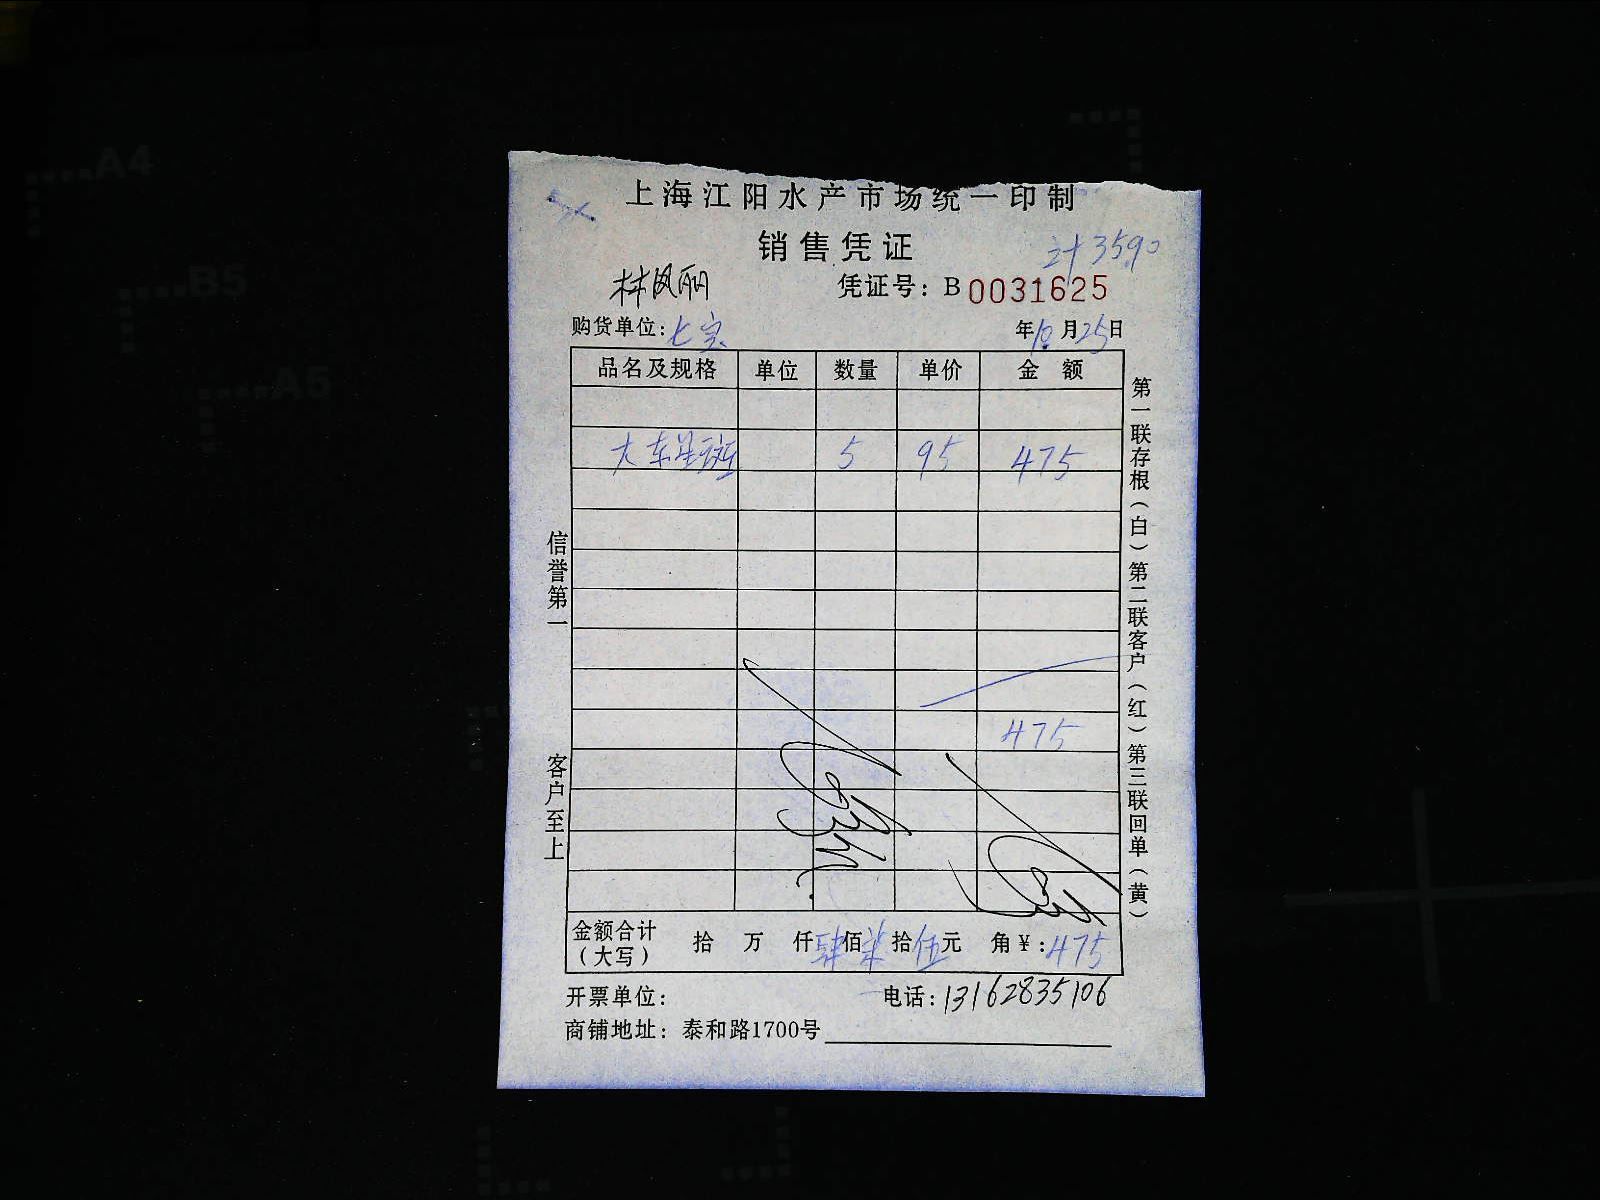 A4
B5
A5
上海江阳水产市场统一印制
销售凭证
计3590
林凤丽
凭证号：B 0031625
购货单位：七宝
年10月25日
品名及规格 单位 数量 单价 金额
大东星斑 5 95 475
475
金额合计（大写） 拾 万 仟肆佰柒拾伍元 角￥：475
开票单位：
电话：13162835106
商铺地址：泰和路1700号
信誉第一
客户至上
第一联存根（白）第二联客户（红）第三联回单（黄）